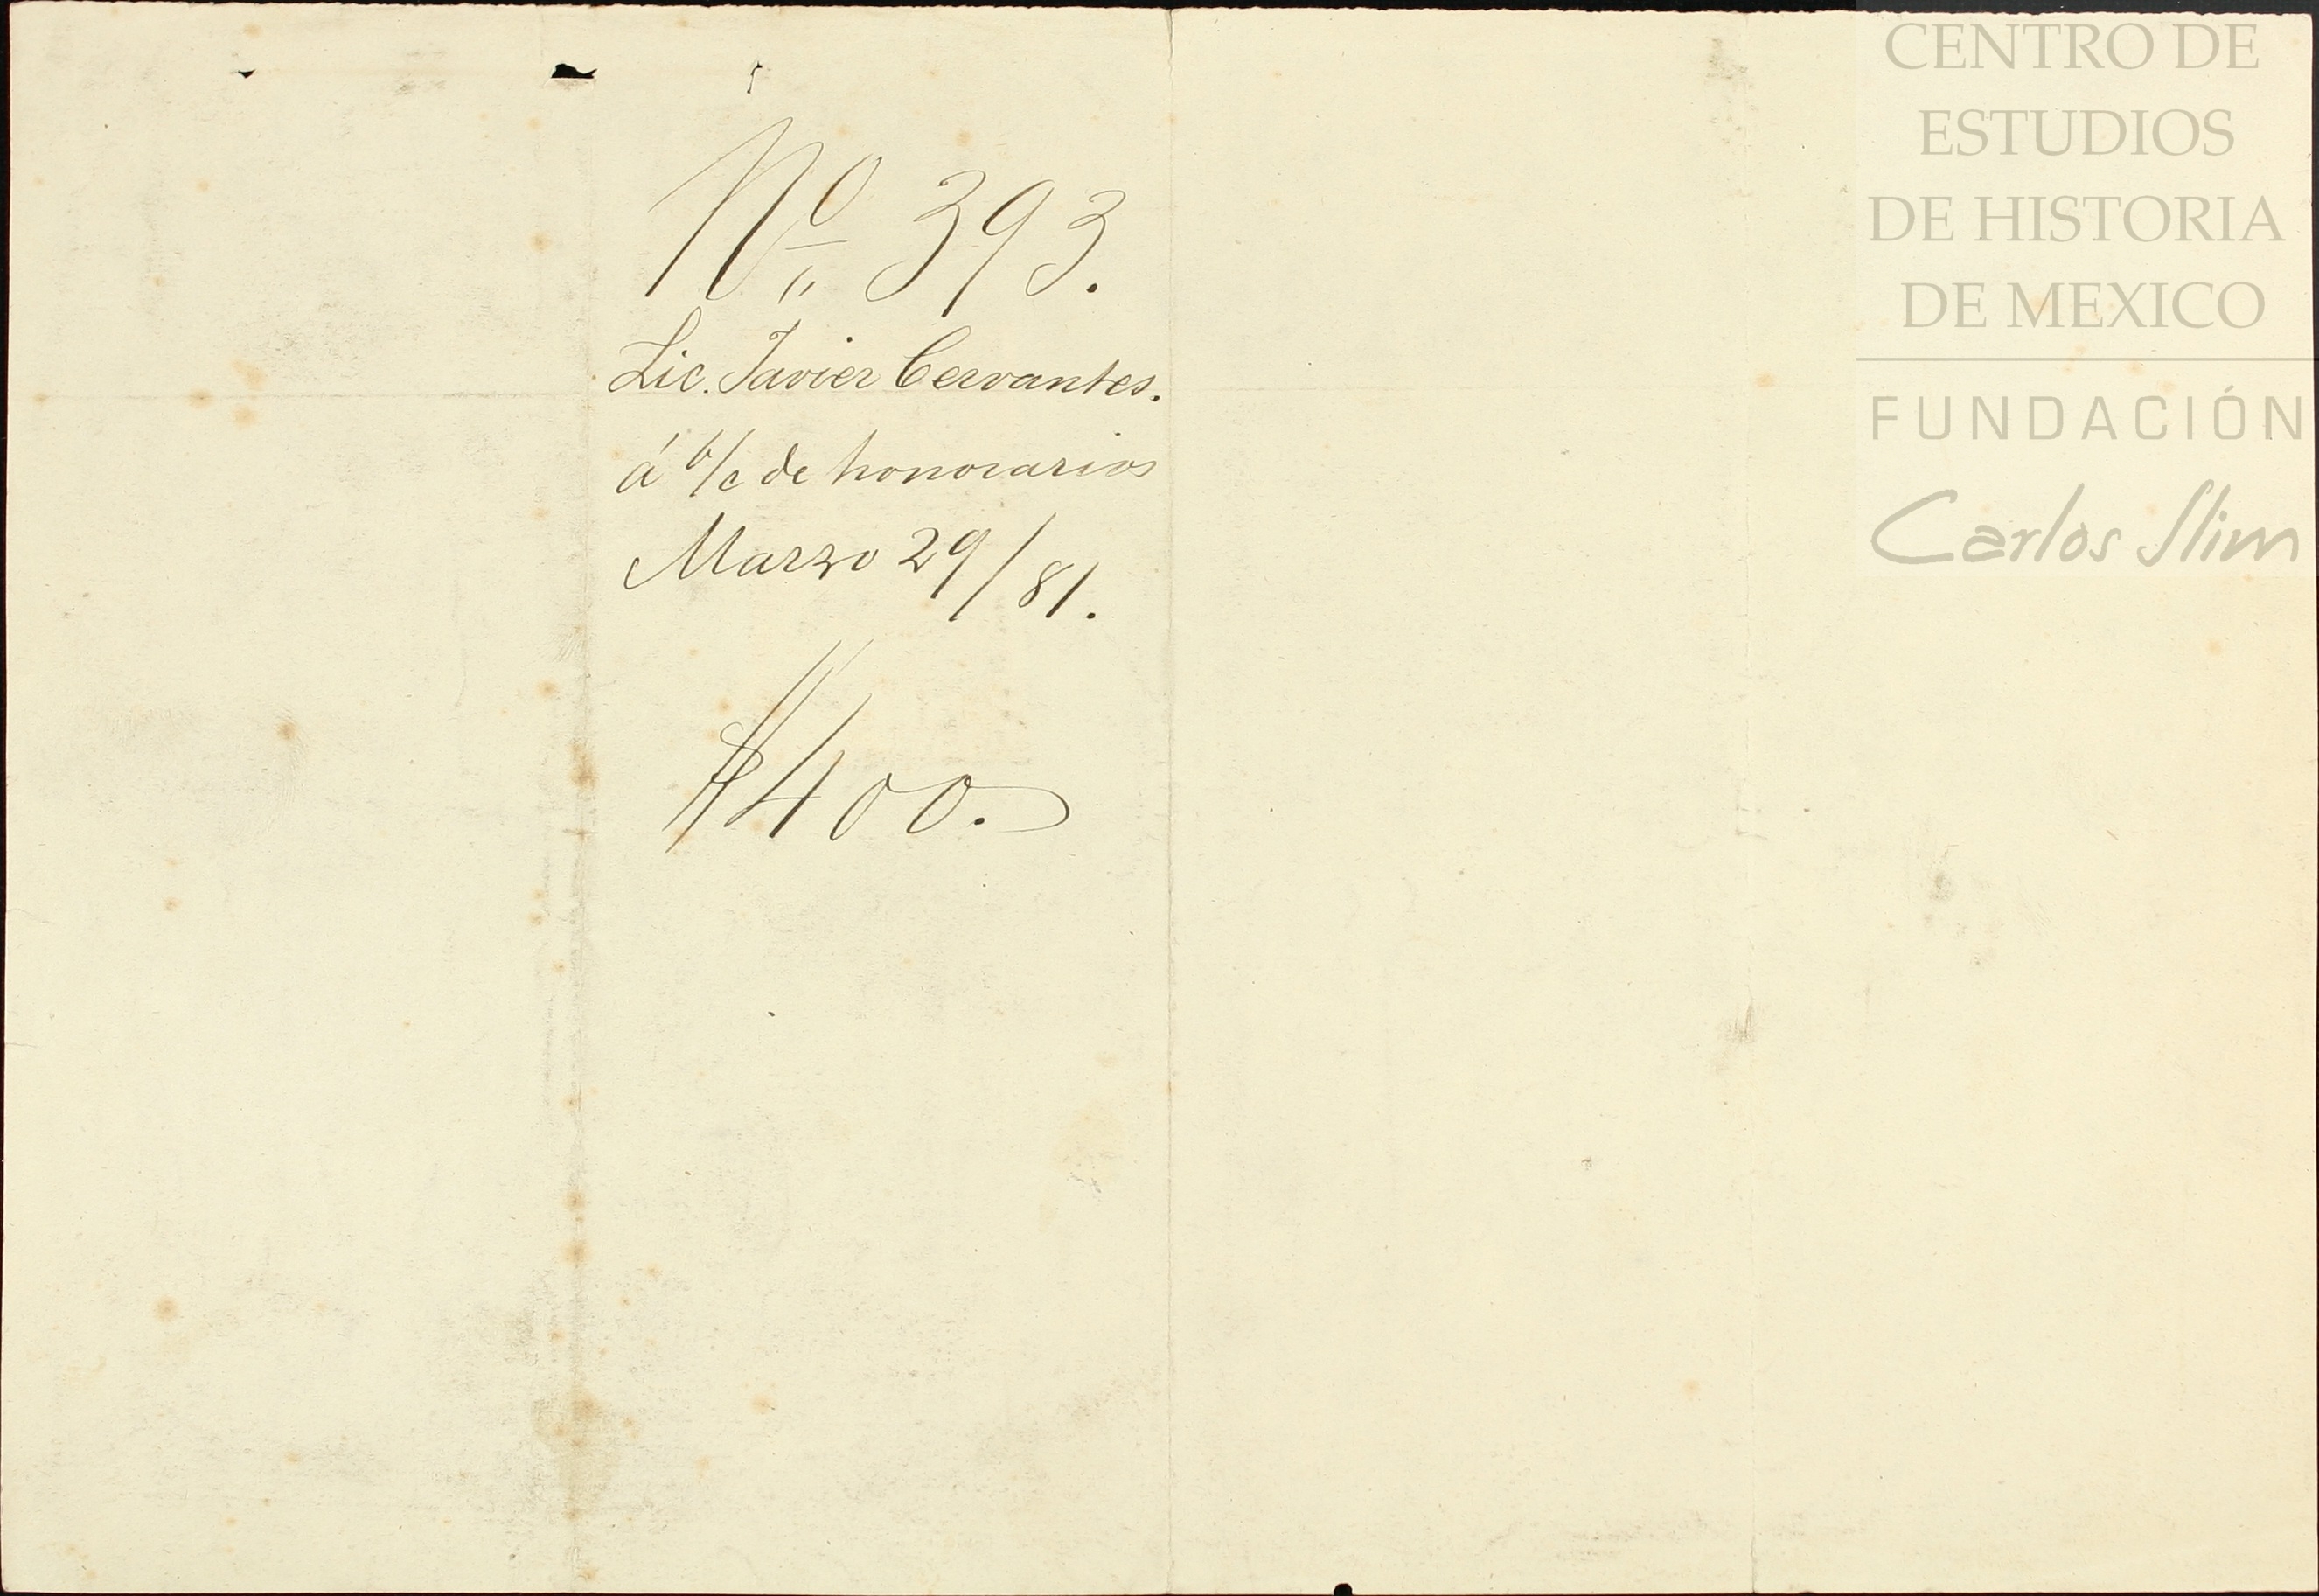 Nº 393.
Lic. Javier Cervantes.
á b/c de honorarios
Marzo 29/81.
$400.
CENTRO DE
ESTUDIOS
DE HISTORIA
DE MEXICO
FUNDACIÓN
Carlos Slim